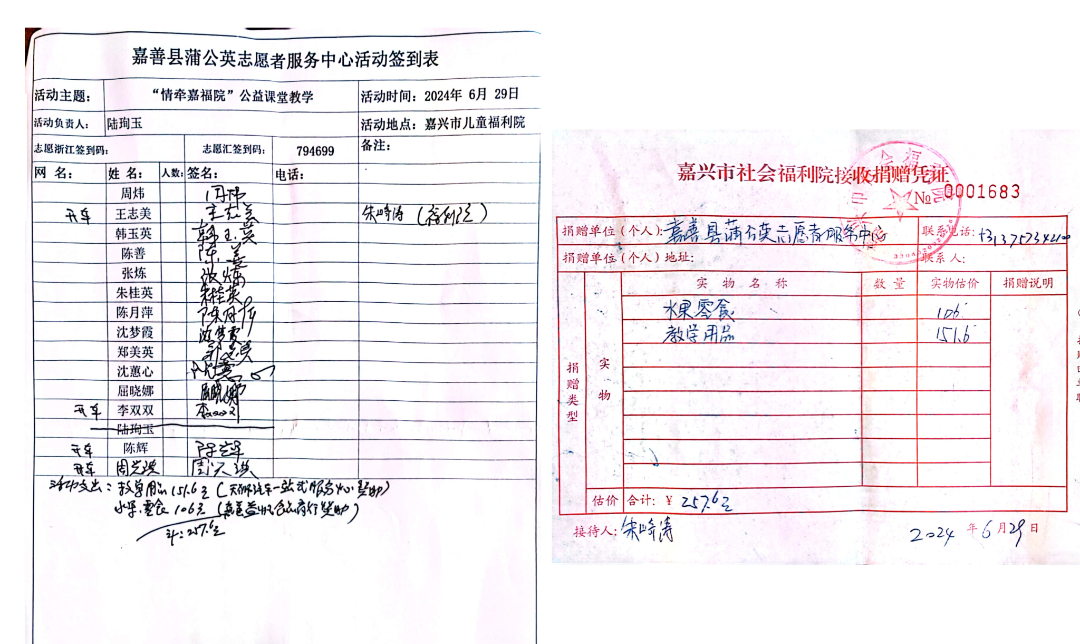 嘉善县蒲公英志愿者服务中心活动签到表
活动主题： “情牵嘉福院”公益课堂教学 活动时间：2024年 6月 29日
活动负责人： 陆珣玉 活动地点：嘉兴市儿童福利院
志愿浙江签到码： 志愿汇签到码： 794699 备注：
网 名： 姓 名： 人数： 签名： 电话：
周炜 周炜
开车 王志美 王志美 朱峥涛（福利院）
韩玉英 韩玉英
陈善 陈善
张炼 张炼
朱桂英 朱桂英
陈月萍 陈月萍
沈梦霞 沈梦霞
郑美英 郑美英
沈蕙心
屈晓娜 屈晓娜
开车 李双双 李双双
陆珣玉
开车 陈辉 陈辉
开车
活动支出：教学用品151.6元（ 一站式服务中心赞助）
水果.零食 106元（
计：257.6元
嘉兴市社会福利院接收捐赠凭证
№ 0001683
捐赠单位（个人）：嘉善县蒲公英志愿者服务中心 联系电话：
捐赠单位（个人）地址： 联系人：
捐赠类型 实物 实 物 名 称 数 量 实物估价 捐赠说明
水果零食 106
教学用品 151.6
估价 合计：￥ 257.6元
接待人：朱峥涛 2024 年 6 月 29 日